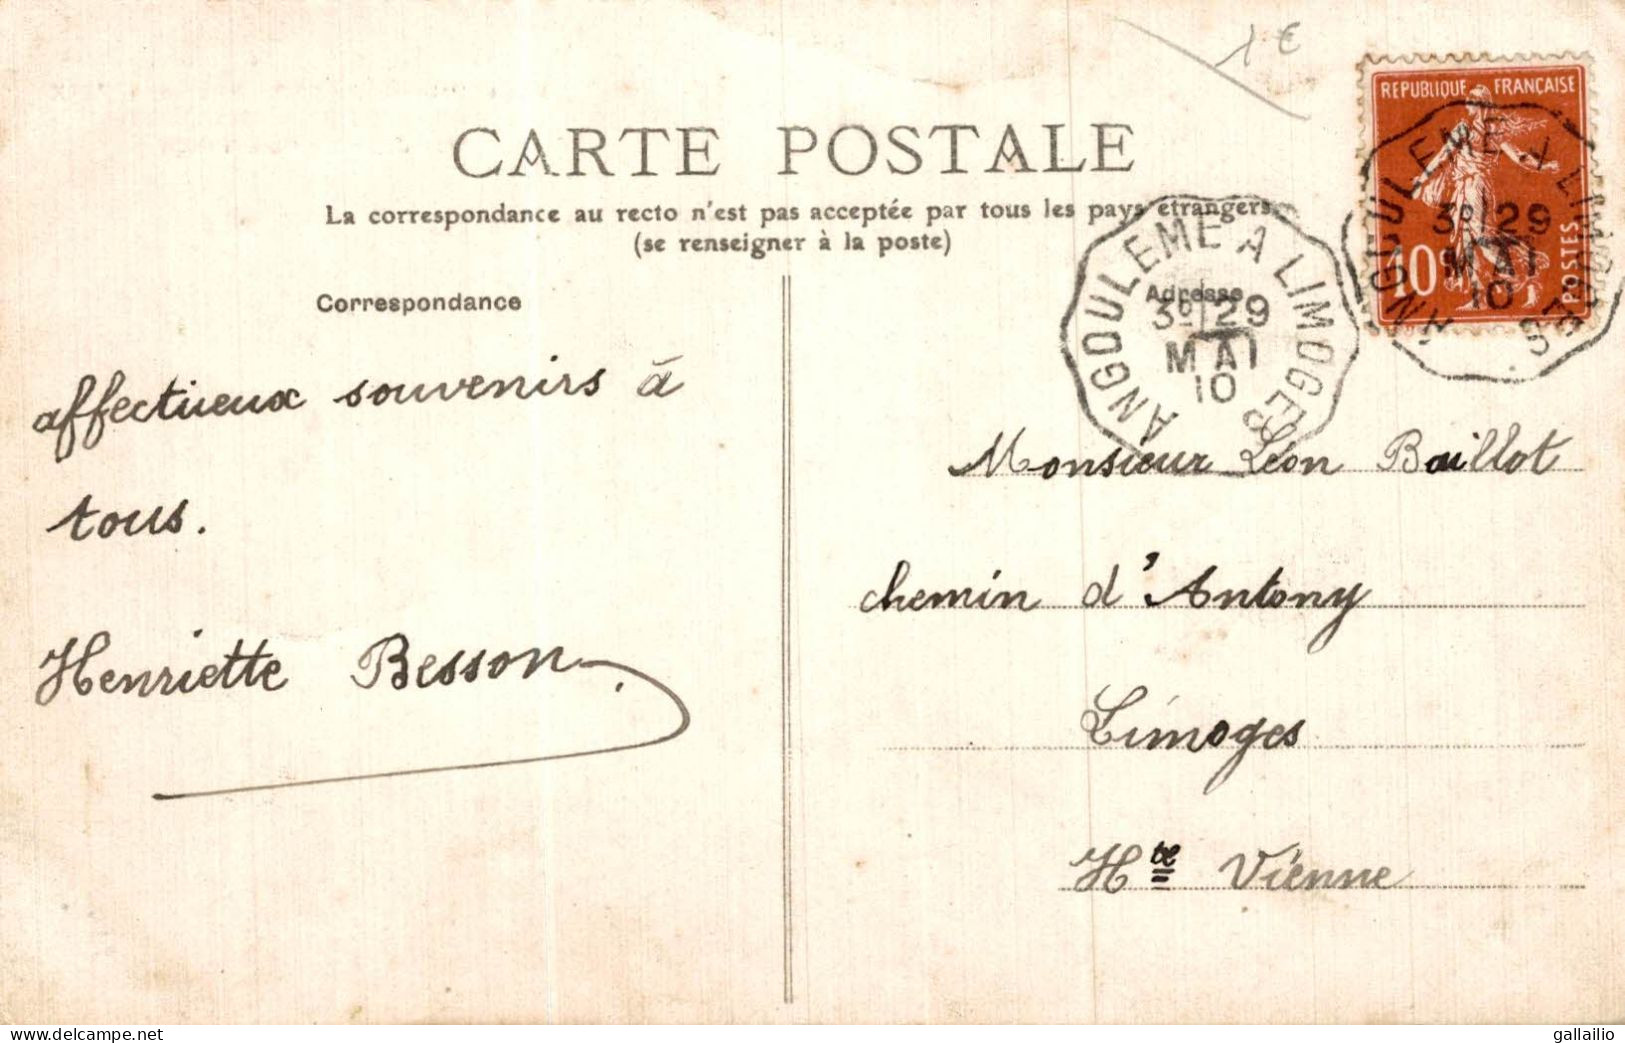 1 €
REPUBLIQUE FRANÇAISE
10c
POSTES
ANGOULEME A LIMOGES
3º 29
MAI
10
CARTE POSTALE
La correspondance au recto n'est pas acceptée par tous les pays étrangers
(se renseigner à la poste)
ANGOULEME A LIMOGES
3º 29
MAI
10
Correspondance
Adresse
affectueux souvenirs à
tous.
Henriette Besson.
Monsieur Léon Baillot
chemin d'Antony
Limoges
Hte Vienne
www.delcampe.net
gallailio